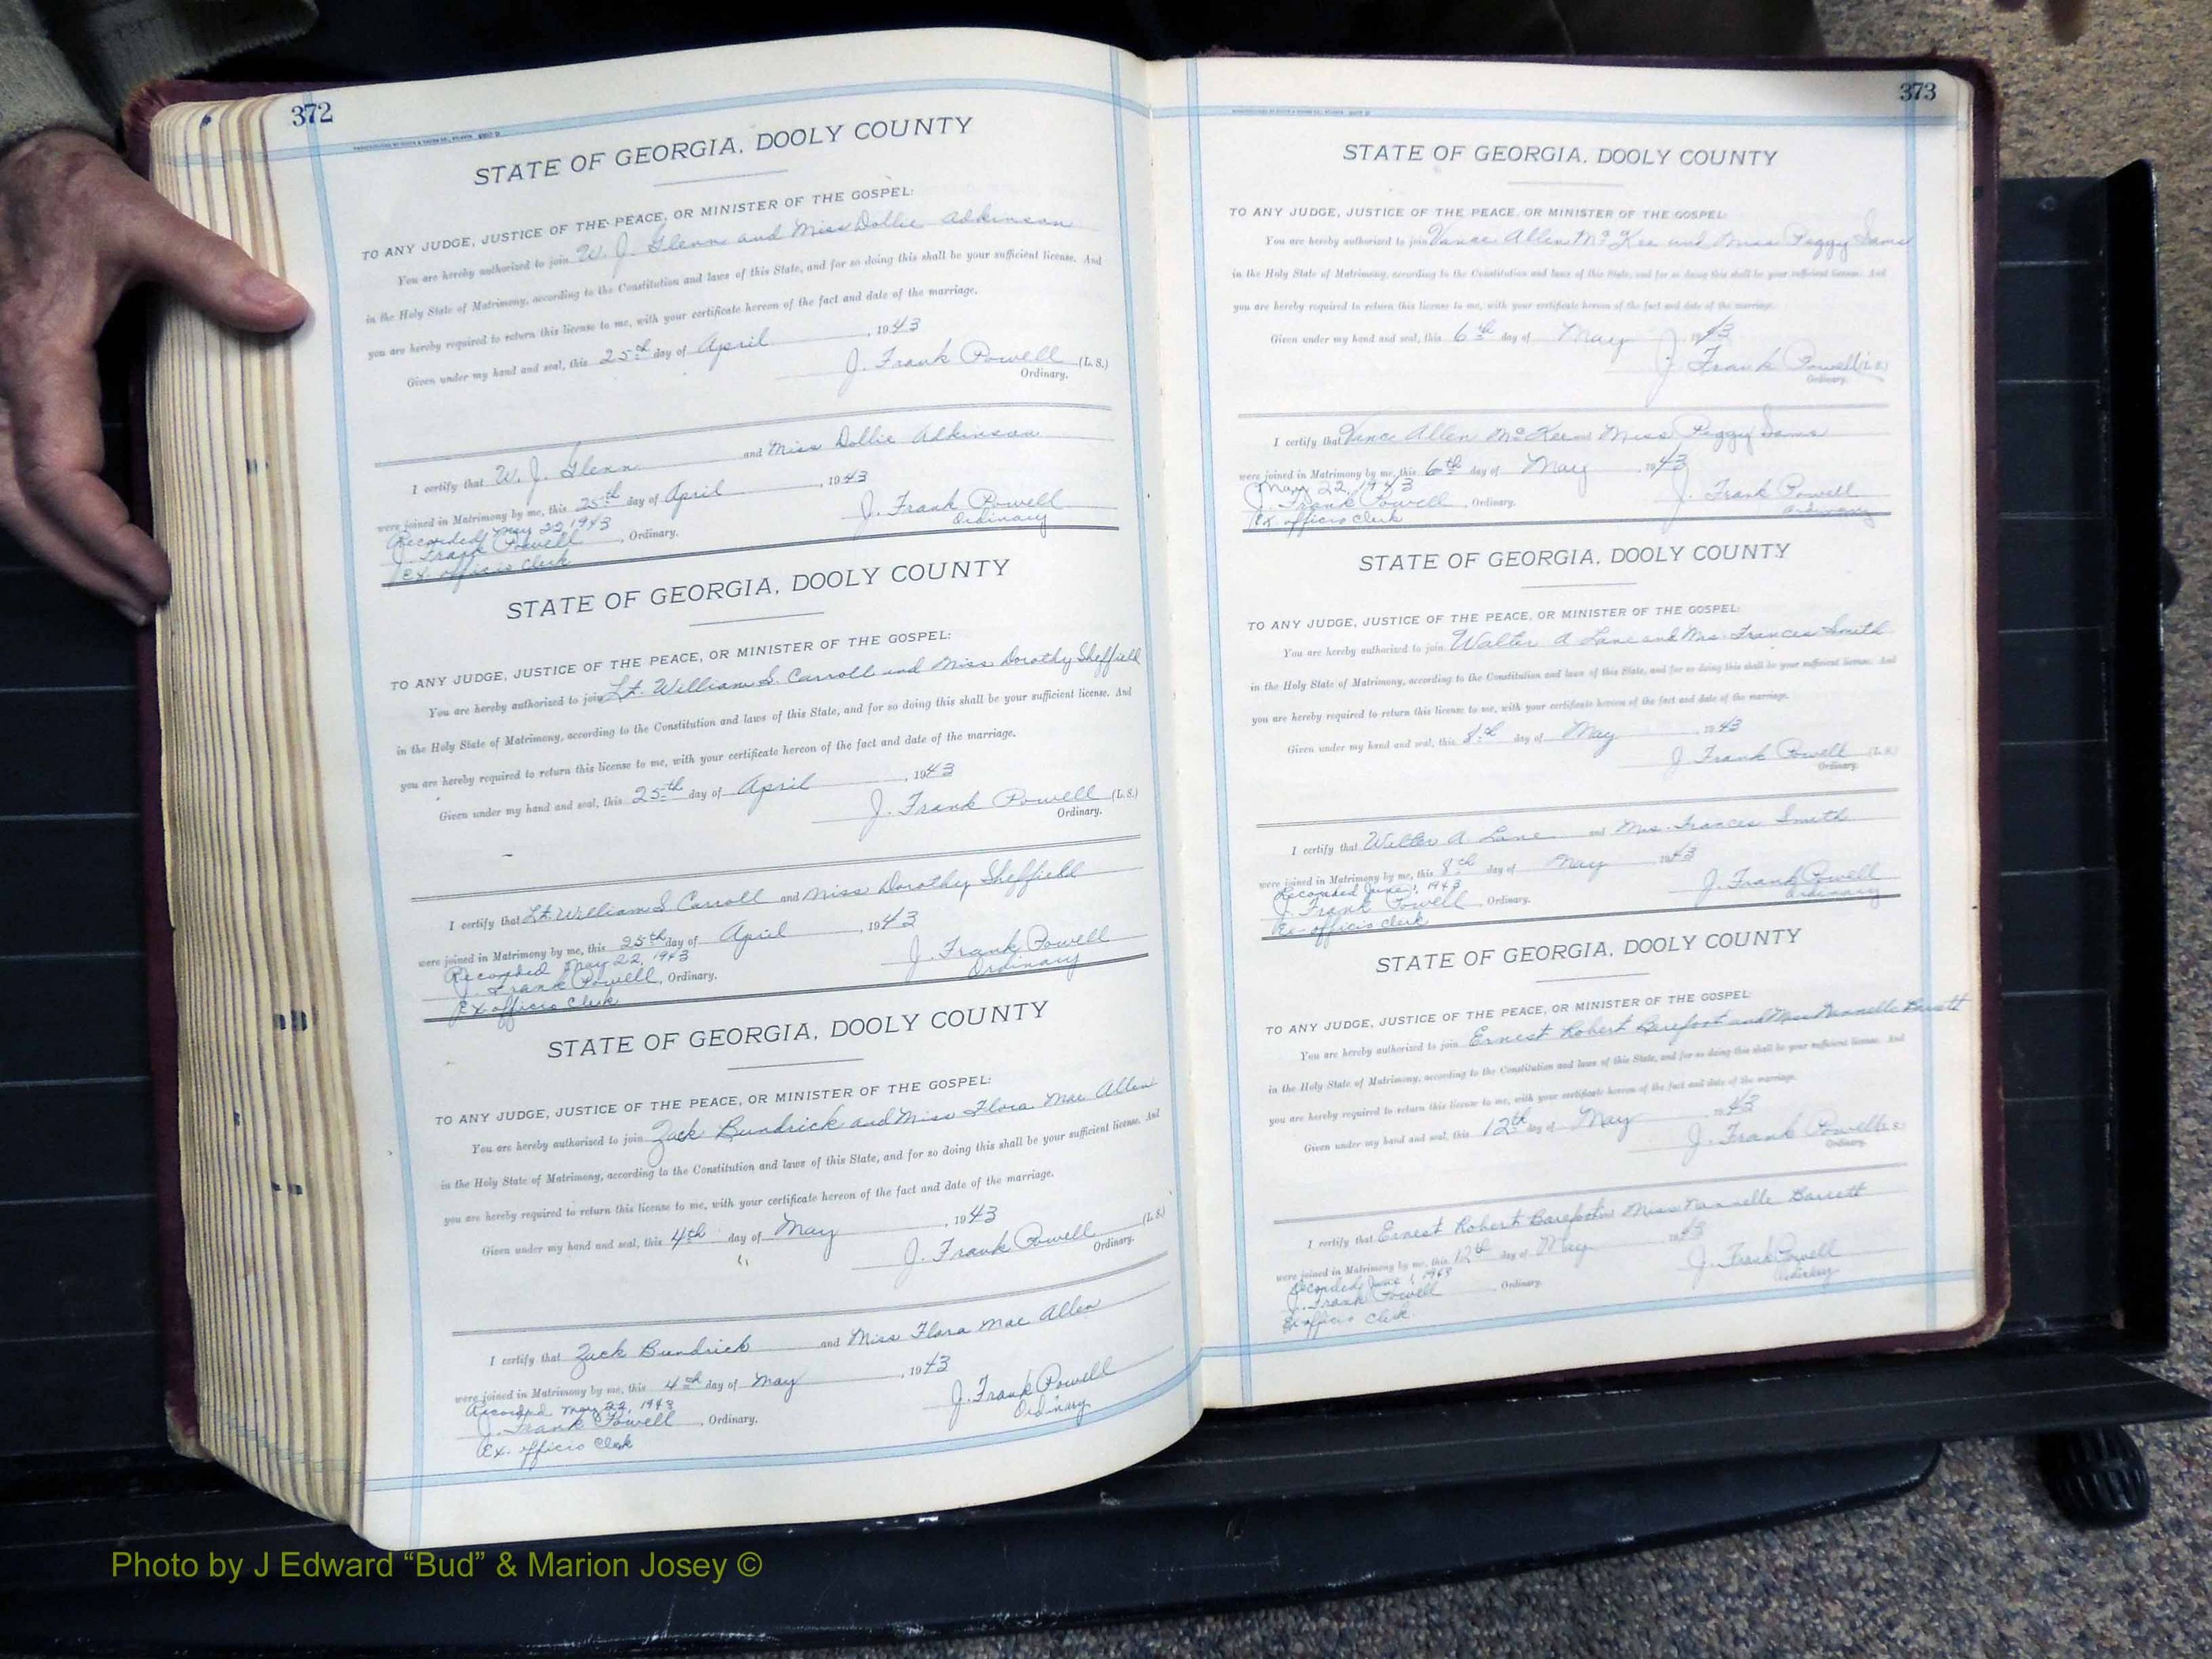 372
STATE OF GEORGIA, DOOLY COUNTY
TO ANY JUDGE, JUSTICE OF THE PEACE, OR MINISTER OF THE GOSPEL:
You are hereby authorized to join W. J. Glenn and Miss Dollie Adkinson
in the Holy State of Matrimony, according to the Constitution and laws of this State, and for so doing this shall be your sufficient license. And
you are hereby required to return this license to me, with your certificate hereon of the fact and date of the marriage.
Given under my hand and seal, this 25th day of April, 1943
J. Frank Powell (L. S.)
Ordinary.
I certify that W. J. Glenn and Miss Dollie Adkinson
were joined in Matrimony by me, this 25th day of April, 1943
Recorded May 22, 1943
J. Frank Powell, Ordinary.
J. Frank Powell
Ordinary
Ex. officio Clerk
STATE OF GEORGIA, DOOLY COUNTY
TO ANY JUDGE, JUSTICE OF THE PEACE, OR MINISTER OF THE GOSPEL:
You are hereby authorized to join Lt. William S. Carroll and Miss Dorothy Sheffield
in the Holy State of Matrimony, according to the Constitution and laws of this State, and for so doing this shall be your sufficient license. And
you are hereby required to return this license to me, with your certificate hereon of the fact and date of the marriage.
Given under my hand and seal, this 25th day of April, 1943
J. Frank Powell (L. S.)
Ordinary.
I certify that Lt. William S. Carroll and Miss Dorothy Sheffield
were joined in Matrimony by me, this 25th day of April, 1943
Recorded May 22, 1943
J. Frank Powell, Ordinary.
J. Frank Powell
Ordinary
Ex officio Clerk
STATE OF GEORGIA, DOOLY COUNTY
TO ANY JUDGE, JUSTICE OF THE PEACE, OR MINISTER OF THE GOSPEL:
You are hereby authorized to join Zack Bundrick and Miss Flora Mae Allen
in the Holy State of Matrimony, according to the Constitution and laws of this State, and for so doing this shall be your sufficient license. And
you are hereby required to return this license to me, with your certificate hereon of the fact and date of the marriage.
Given under my hand and seal, this 4th day of May, 1943
J. Frank Powell (L. S.)
Ordinary.
I certify that Zack Bundrick and Miss Flora Mae Allen
were joined in Matrimony by me, this 4th day of May, 1943
Recorded May 22, 1943
J. Frank Powell, Ordinary.
J. Frank Powell
Ordinary
Ex. officio Clerk
373
STATE OF GEORGIA, DOOLY COUNTY
TO ANY JUDGE, JUSTICE OF THE PEACE, OR MINISTER OF THE GOSPEL:
You are hereby authorized to join Vance Allen McKee and Miss Peggy Sams
in the Holy State of Matrimony, according to the Constitution and laws of this State, and for so doing this shall be your sufficient license. And
you are hereby required to return this license to me, with your certificate hereon of the fact and date of the marriage.
Given under my hand and seal, this 6th day of May 1943
J. Frank Powell (L. S.)
Ordinary.
I certify that Vance Allen McKee and Miss Peggy Sams
were joined in Matrimony by me, this 6th day of May, 1943
May 22, 1943
J. Frank Powell, Ordinary.
J. Frank Powell
Ordinary
Ex officio Clerk
STATE OF GEORGIA, DOOLY COUNTY
TO ANY JUDGE, JUSTICE OF THE PEACE, OR MINISTER OF THE GOSPEL:
You are hereby authorized to join Walter A Lane and Mrs. Frances Smith
in the Holy State of Matrimony, according to the Constitution and laws of this State, and for so doing this shall be your sufficient license. And
you are hereby required to return this license to me, with your certificate hereon of the fact and date of the marriage.
Given under my hand and seal, this 8th day of May, 1943
J. Frank Powell (L. S.)
Ordinary.
I certify that Walter A Lane and Mrs. Frances Smith
were joined in Matrimony by me, this 8th day of May, 1943
Recorded June 1, 1943
J. Frank Powell, Ordinary.
J. Frank Powell
Ordinary
Ex-officio Clerk
STATE OF GEORGIA, DOOLY COUNTY
TO ANY JUDGE, JUSTICE OF THE PEACE, OR MINISTER OF THE GOSPEL:
You are hereby authorized to join Ernest Robert Barefoot and Miss Nannelle Barrett
in the Holy State of Matrimony, according to the Constitution and laws of this State, and for so doing this shall be your sufficient license. And
you are hereby required to return this license to me, with your certificate hereon of the fact and date of the marriage.
Given under my hand and seal, this 12th day of May 1943
J. Frank Powell
Ordinary.
I certify that Ernest Robert Barefoot Miss Nannelle Barrett
were joined in Matrimony by me, this 12th day of May 1943
Recorded June 1, 1943
J. Frank Powell, Ordinary.
J. Frank Powell
Ordinary
Ex officio Clerk
Photo by J Edward “Bud” & Marion Josey ©